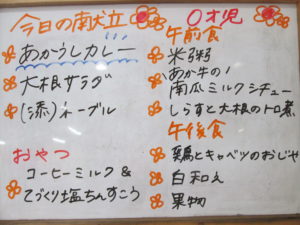 今日の献立
あかうしカレー
大根サラダ
(添)ネーブル
おやつ
コーヒーミルク&
てづくり塩ちんすこう
0才児
午前食
米粥
あか牛の
南瓜ミルクシチュー
しらすと大根のトロ煮
午後食
鶏とキャベツのおじや
白和え
果物